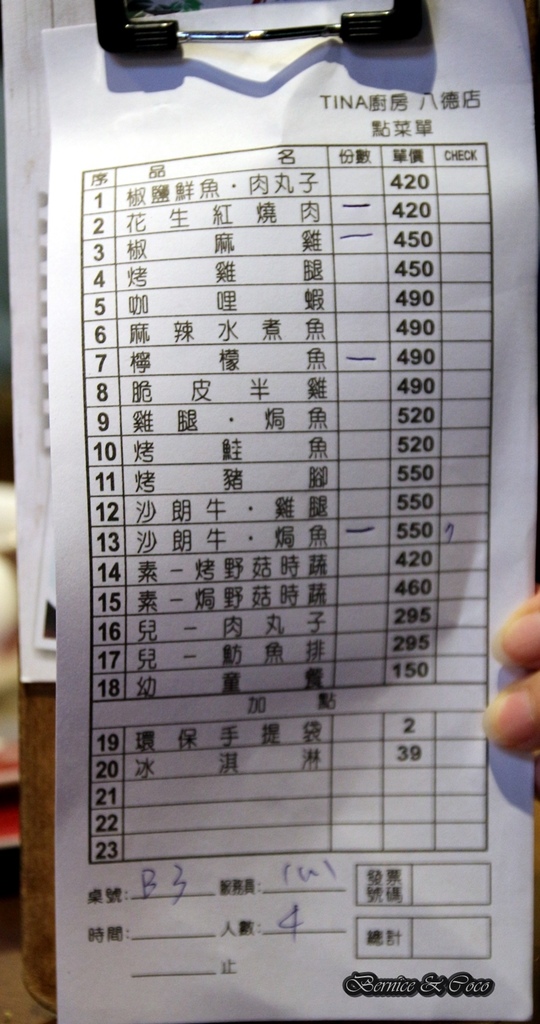 TINA廚房 八德店
點菜單
序 品名 份數 單價 CHECK
1 椒鹽鮮魚·肉丸子 420
2 花生紅燒肉 一 420
3 椒麻雞 一 450
4 烤雞腿 450
5 咖哩蝦 490
6 麻辣水煮魚 490
7 檸檬魚 一 490
8 脆皮半雞 490
9 雞腿·焗魚 520
10 烤鮭魚 520
11 烤豬腳 550
12 沙朗牛·雞腿 550
13 沙朗牛·焗魚 一 550
14 素-烤野菇時蔬 420
15 素-焗野菇時蔬 460
16 兒-肉丸子 295
17 兒-魴魚排 295
18 幼童餐 150
加點
19 環保手提袋 2
20 冰淇淋 39
21
22
23
桌號: B3 服務員: 發票號碼
時間: 人數: 4 總計
止
Bernice & Coco